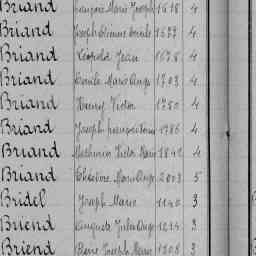 Briand François Marie Joseph 1618 4
Briand Joseph Etienne 1677 4
Briand Léopold Jean 1678 4
Briand Emile Marie Ange 1703 4
Briand Henry Victor 1750 4
Briand Joseph François 1786 4
Briand Mathurin Victor Marie 1842 4
Briand Théodore Marie Ange 2003 5
Bridel Joseph Marie 1140 3
Briend Auguste Jules Ange 1214 3
Briend Pierre Joseph Marie 1308 3